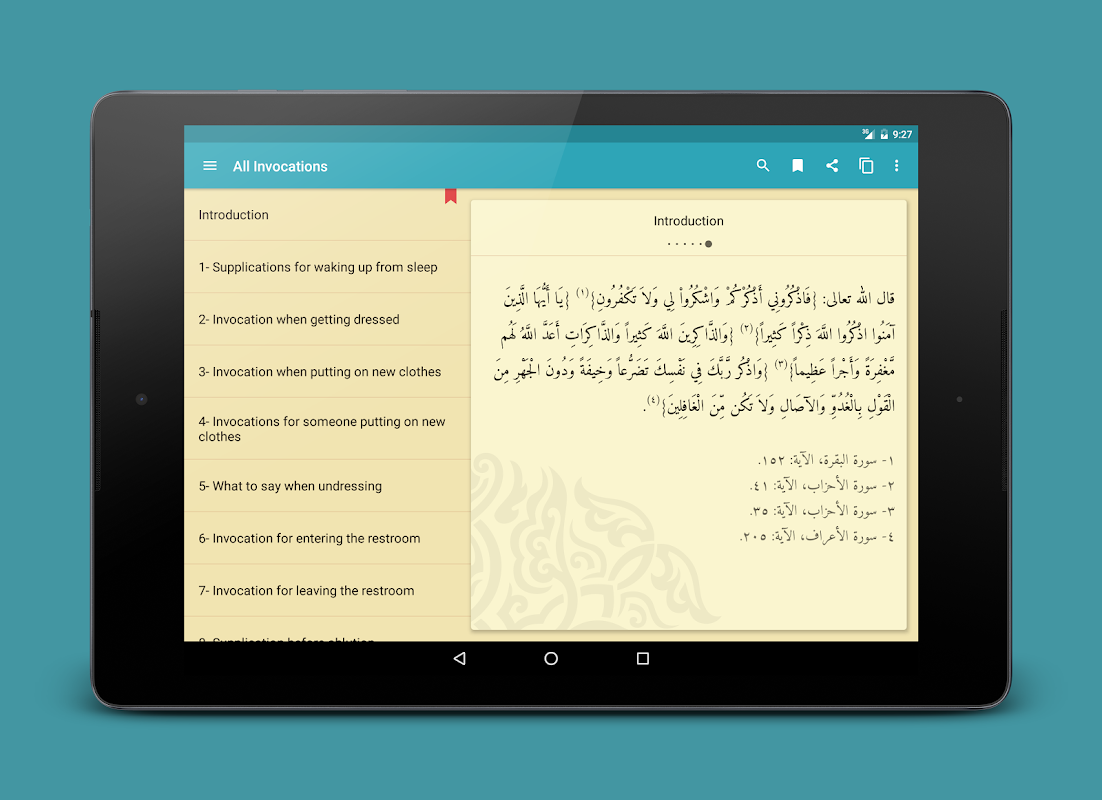 3G 9:27
All Invocations
Introduction
1- Supplications for waking up from sleep
2- Invocation when getting dressed
3- Invocation when putting on new clothes
4- Invocations for someone putting on new
clothes
5- What to say when undressing
6- Invocation for entering the restroom
7- Invocation for leaving the restroom
8- Supplication before ablution
Introduction
قال الله تعالى: {فَاذْكُرُونِي أَذْكُرْكُمْ وَاشْكُرُواْ لِي وَلاَ تَكْفُرُونِ}(١) {يَا أَيُّهَا الَّذِينَ
آمَنُوا اذْكُرُوا اللَّهَ ذِكْراً كَثِيراً}(٢) {وَالذَّاكِرِينَ اللَّهَ كَثِيراً وَالذَّاكِرَاتِ أَعَدَّ اللَّهُ لَهُم
مَّغْفِرَةً وَأَجْراً عَظِيماً}(٣) {وَاذْكُر رَّبَّكَ فِي نَفْسِكَ تَضَرُّعاً وَخِيفَةً وَدُونَ الْجَهْرِ مِنَ
الْقَوْلِ بِالْغُدُوِّ وَالآصَالِ وَلاَ تَكُن مِّنَ الْغَافِلِينَ}(٤).
١- سورة البقرة، الآية: ١٥٢.
٢- سورة الأحزاب، الآية: ٤١.
٣- سورة الأحزاب، الآية: ٣٥.
٤- سورة الأعراف، الآية: ٢٠٥.